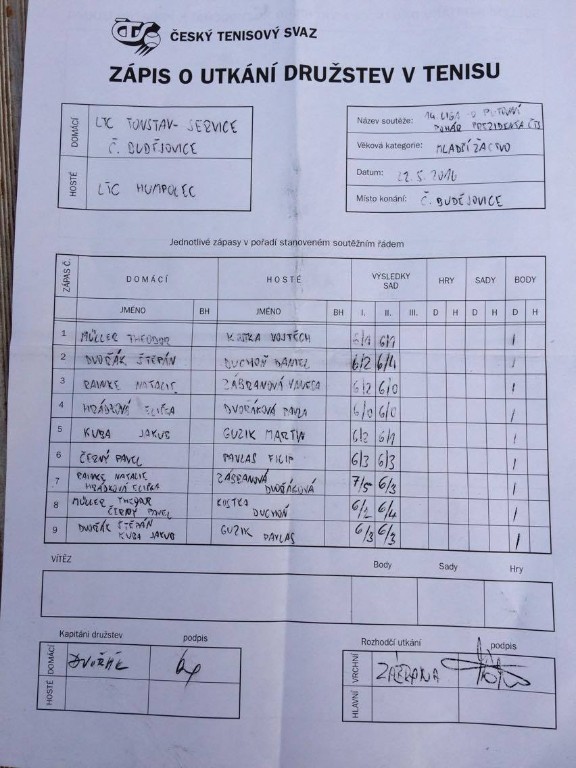 ČESKÝ TENISOVÝ SVAZ
ZÁPIS O UTKÁNÍ DRUŽSTEV V TENISU
DOMÁCÍ
LTC TONSTAV-SERVICE
Č. BUDĚJOVICE
HOSTÉ
LTC HUMPOLEC
Název soutěže:
POHÁR PREZIDENTA ČTS
Věková kategorie: MLADŠÍ ŽACTVO
Datum: 22.5.2016
Místo konání: Č. BUDĚJOVICE
Jednotlivé zápasy v pořadí stanoveném soutěžním řádem
ZÁPAS Č. DOMÁCÍ HOSTÉ VÝSLEDKY SAD HRY SADY BODY
JMÉNO BH JMÉNO BH I. II. III. D H D H D H
1 MÜLLER THEODOR VOJTĚCH 6/1 6/1 1
2 DVOŘÁK ŠTĚPÁN DUCHOŇ DANIEL 6/2 6/4 1
3 RAINKE NATALIE ZÁBRANOVÁ 6/2 6/0 1
4 HRÁDKOVÁ ELIŠKA DVOŘÁKOVÁ PAVLA 6/0 6/0 1
5 KUBA JAKUB GUZIK MARTIN 6/2 6/1 1
6 ČERNÝ PAVEL PAVLAS FILIP 6/3 6/3 1
7 RAINKE NATALIE ZÁBRANOVÁ 7/5 6/3 1
HRÁDKOVÁ ELIŠKA DVOŘÁKOVÁ
8 MÜLLER THEODOR KOSTKA 6/2 6/4 1
ČERNÝ PAVEL DUCHOŇ
9 DVOŘÁK ŠTĚPÁN GUZIK 6/3 6/3 1
KUBA JAKUB PAVLAS
VÍTĚZ Body Sady Hry
Kapitáni družstev podpis
DOMÁCÍ DVOŘÁK
HOSTÉ
Rozhodčí utkání podpis
VRCHNÍ ZÁBRANA
HLAVNÍ